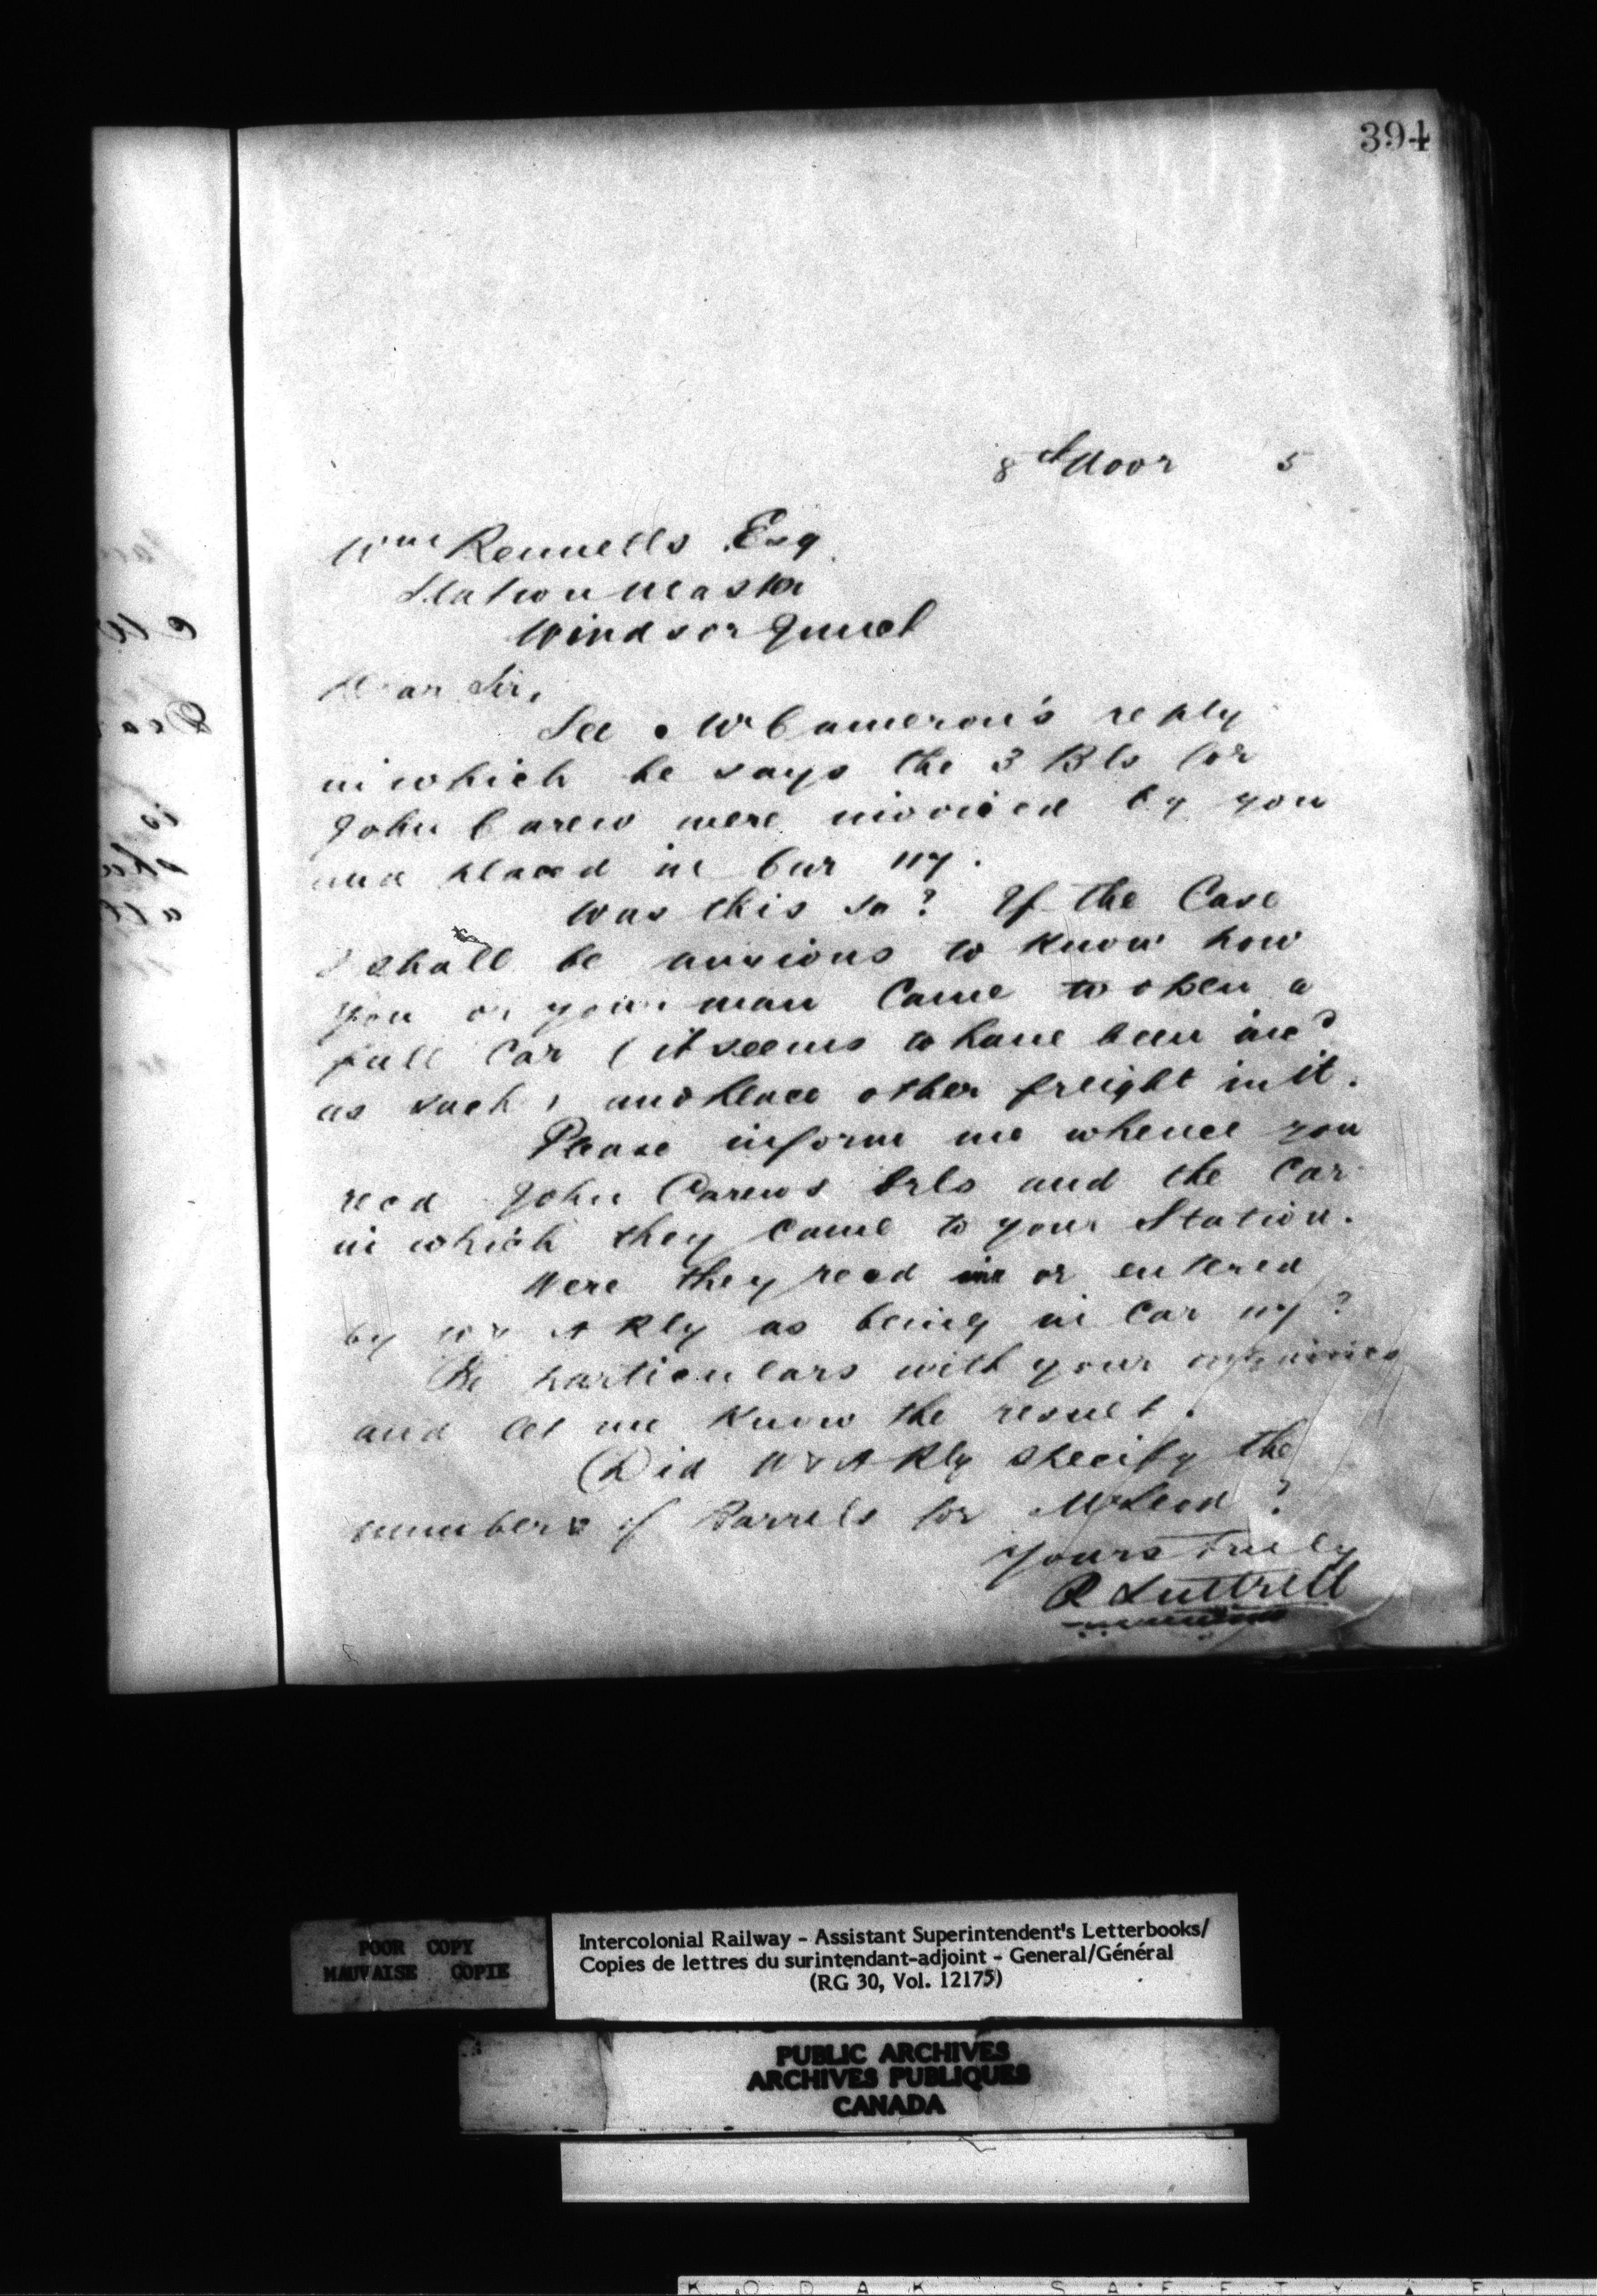 394
8th Novr 5
Wm Rennells Esq
Station Master
Windsor Junct
Dear Sir,
See Mr Cameron's reply
in which he says the 3 Bls for
John Carew were invoiced by you
and placed in Car 117.
Was this so? If the Case
I shall be anxious to know how
you or your man Came to open a
full Car (it seems to have been invd
as such) and place other freight in it.
Please inform me whence you
recd John Carews brls and the Car
in which they came to your Station.
Were they recd in or entered
by W & A Rly as being in Car 117?
Be particulars with your enquiries
and let me know the result.
Did W & A Rly specify the
numbers of Barrels for McLeod?
Yours truly
R Luttrell
POOR COPY
MAUVAISE COPIE
Intercolonial Railway - Assistant Superintendent's Letterbooks/
Copies de lettres du surintendant-adjoint - General/Général
(RG 30, Vol. 12175)
PUBLIC ARCHIVES
ARCHIVES PUBLIQUES
CANADA
KODAK SAFETY